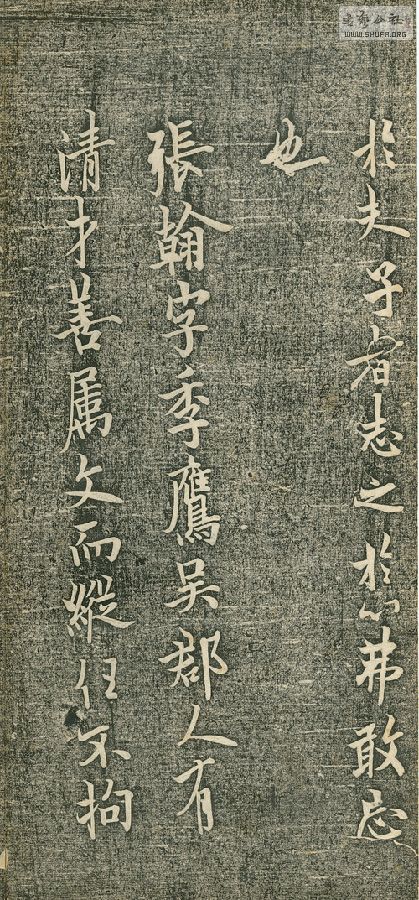 於夫子者志之於心弗敢忘
也
張翰字季鷹吴郡人有
清才善属文而縱任不拘
WWW.SHUFA.ORG